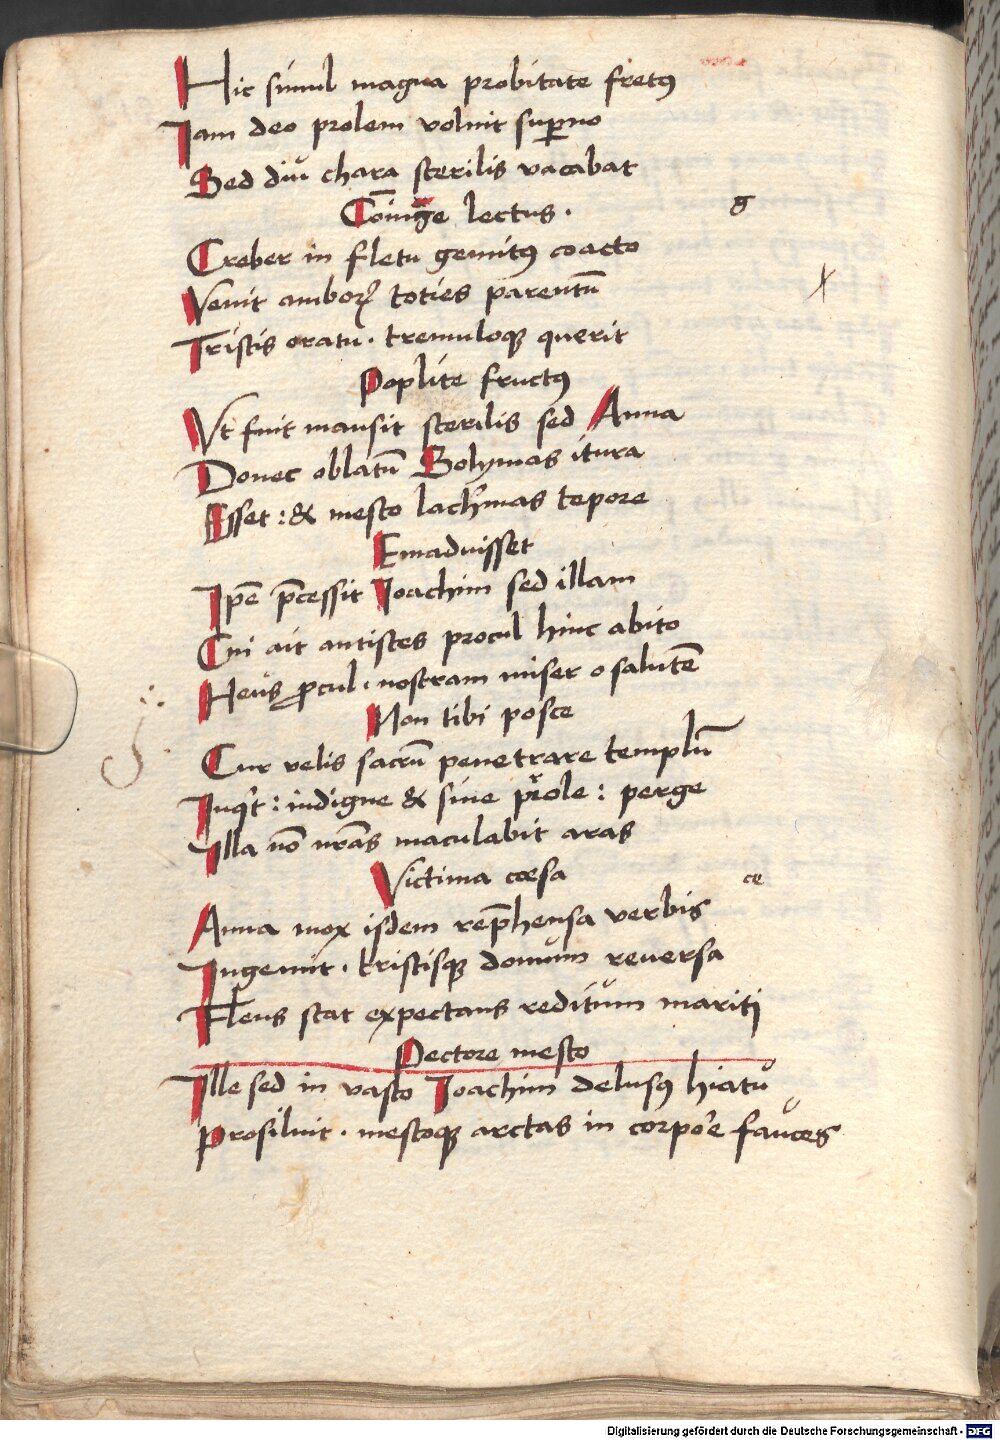 Hic simul magna probitate fretꝰ
Iam deo prolem voluit suꝑno
Sed diu chara sterilis vacabat
Cōiuge lectus. g
Creber in fletu gemitꝰ coacto
Venit amboꝝ toties parentū
Tristis oratu. tremuloqꝫ querit
Poplite fructꝰ
Vt fuit mansit sterilis sed Anna
Donec oblatū Solymas itura
Esset: & mesto lachͬmas tepore
Emaduisset
Ip̄e p̄cessit Ioachim sed illam
Cui ait antistes procul hinc abito
Heus ꝓcul. nostram miser o salutē
Non tibi posce
Cur velis sacrū penetrare templū
Inqͥt: indigne & sine prole: perge
Illa nō nr̄as maculabit aras
Victima cæsa ce
Anna mox isdem rep̄hensa verbis
Ingemit. tristisqꝫ domum reuersa
Flens stat expectans reditum mariti
Pectore mesto
Ille sed in vasto Ioachim delusꝰ hiatu
Prosiluit. mestoqꝫ arctas in corpore fauces
Digitalisierung gefördert durch die Deutsche Forschungsgemeinschaft - DFG